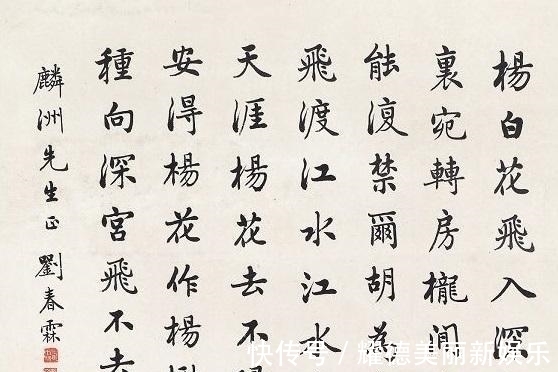 楊白花飛入深
裏宛轉房櫳間
能復禁爾胡為
飛渡江水江水
天涯楊花去不
安得楊花作楊
種向深宮飛不去
麟洲先生正 劉春霖
快传号 / 耀德美丽新娱乐